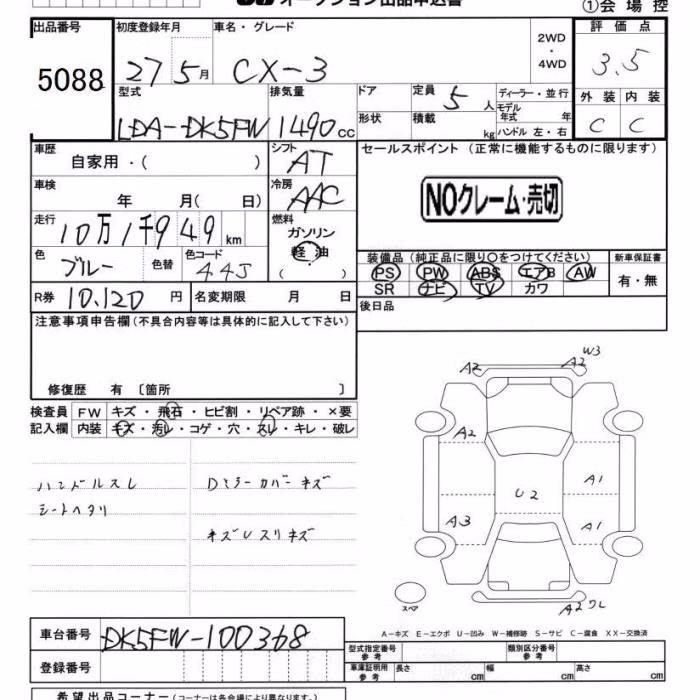 オークション出品申込書
①会場控
出品番号 初度登録年月 車名・グレード 2WD・4WD 評価点
5088 27 5月 CX-3 3.5
型式 排気量 ドア 定員 5人 ディーラー・並行 外装 内装
LDA-DK5FW 1490cc 形状 積載 kg モデル年式 年 ハンドル 左・右 C C
車歴 自家用・( ) シフト AT セールスポイント (正常に機能するものに限ります)
車検 年 月( 日) 冷房 AAC NOクレーム・売切
走行 10万1千949km 燃料 ガソリン 軽油 ( )
色 ブルー 色替 色コード 44J
装備品 (純正品に限り○をつけてください) 新車保証書
PS PW ABS エアB AW 有・無
SR ナビ TV カワ
R券 10,120円 名変期限 月 日 後日品
注意事項申告欄 (不具合内容等は具体的に記入して下さい)
修復歴 有 〔箇所 〕
検査員 FW キズ・飛石・ヒビ割・リペア跡・×要
記入欄 内装 キズ・汚レ・コゲ・穴・スレ・キレ・破レ
ハンドルスレ Dミラーカバーキズ
シートヘタリ
キズUスリキズ
A2 A2 W3
A2
A1
U2
A3 A1
スペア
A2ワレ
A-キズ E-エクボ U-凹み W-補修跡 S-サビ C-腐食 XX-交換済
車台番号 DK5FW-100368
型式指定番号 参考 類別区分番号 参考
登録番号 車庫証明用 参考 長さ cm 幅 cm 高さ cm
希望出品コーナー (コーナーは各会場により異なります。)